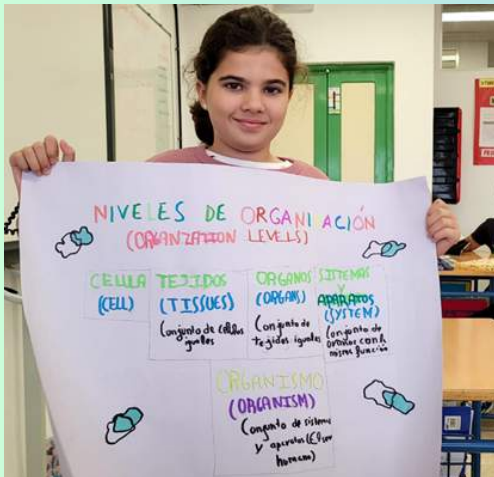 NIVELES DE ORGANIZACIÓN
(ORGANZATION LEVELS)
CELULA
(CELL)
TEJIDOS
(TISSUES)
Conjunto de células
iguales
ORGANOS
(ORGANS)
Conjunto de
tejidos iguales
SISTEMAS
Y
APARATOS
(SYSTEM)
Conjunto de
organos con la
misma función
ORGANISMO
(ORGANISM)
Conjunto de sistemas
y aparatos (El ser
humano)